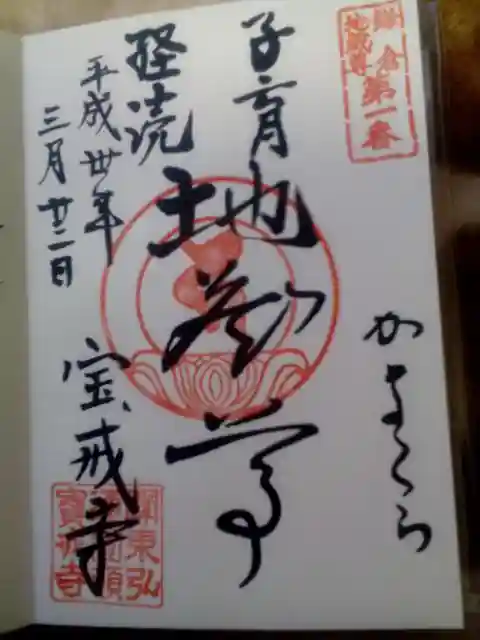 鎌倉
地蔵尊
第一番
かまくら
子育
地蔵尊
経読
地蔵尊
平成丗年
三月廿二日
宝戒寺
關東弘
寶戒寺